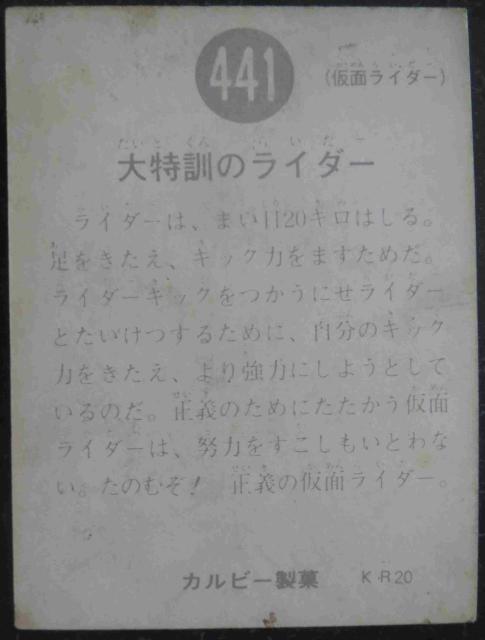 441
(仮面ライダー)
大特訓のライダー
ライダーは、まい日20キロはしる。
足をきたえ、キック力をますためだ。
ライダーキックをつかうにせライダー
とたいけつするために、自分のキック
力をきたえ、より強力にしようとして
いるのだ。正義のためにたたかう仮面
ライダーは、努力をすこしもいとわな
い。たのむぞ! 正義の仮面ライダー。
カルビー製菓 K・R20